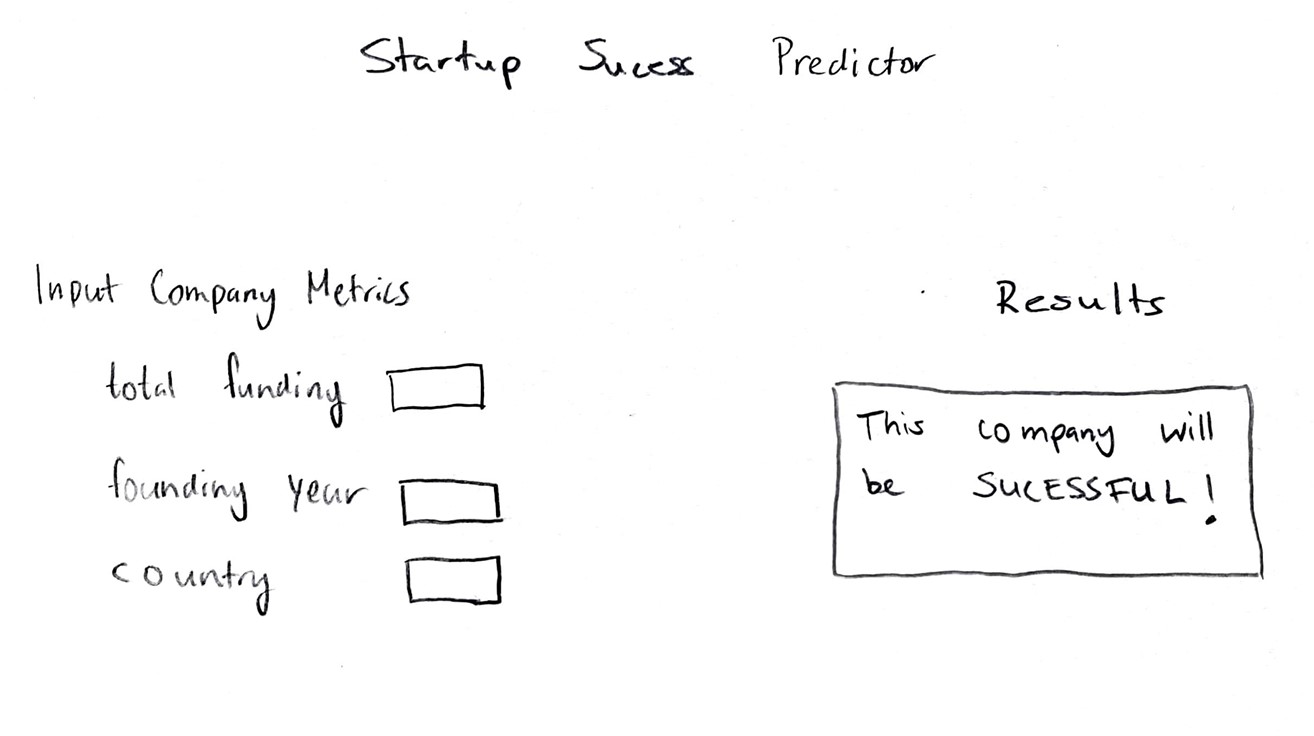 Startup Sucess Predictor
Input Company Metrics
total funding
founding year
country
Results
This company will
be SUCESSFUL!